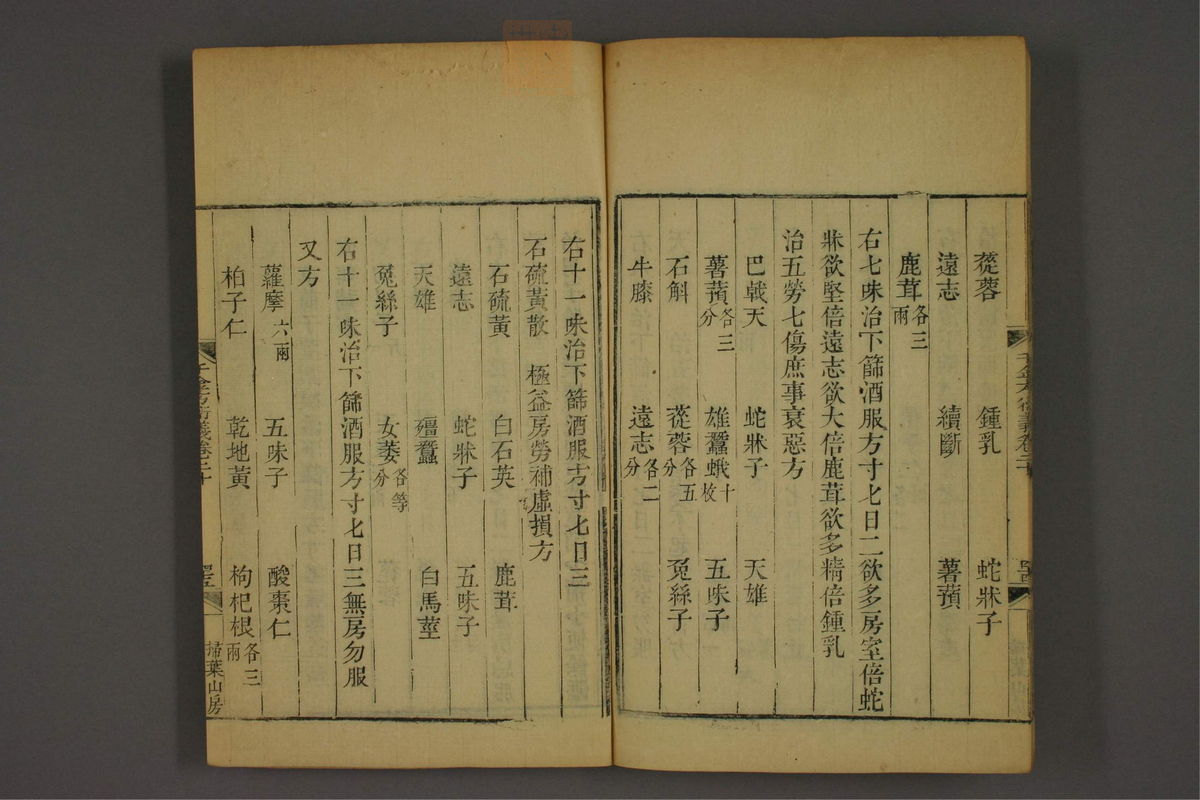 蓯蓉　鍾乳　蛇牀子
遠志　續斷　薯蕷
鹿茸各三兩
右七味治下篩酒服方寸匕日二欲多房室倍蛇
牀欲堅倍遠志欲大倍鹿茸欲多精倍鍾乳
治五勞七傷庶事衰惡方
巴戟天　蛇牀子　天雄
薯蕷各三分　雄蠶蛾十枚　五味子
石斛　蓯蓉各五分　兎絲子
牛膝　遠志各二分
右十一味治下篩酒服方寸匕日三
石硫黃散　極益房勞補虛損方
石硫黃　白石英　鹿茸
遠志　蛇牀子　五味子
天雄　殭蠶　白馬莖
兎絲子　女萎各等分
右十一味治下篩酒服方寸匕日三無房勿服
又方
蘿摩六兩　五味子　酸棗仁
柏子仁　乾地黃　枸杞根各三兩
千金方衍義卷二十
掃葉山房